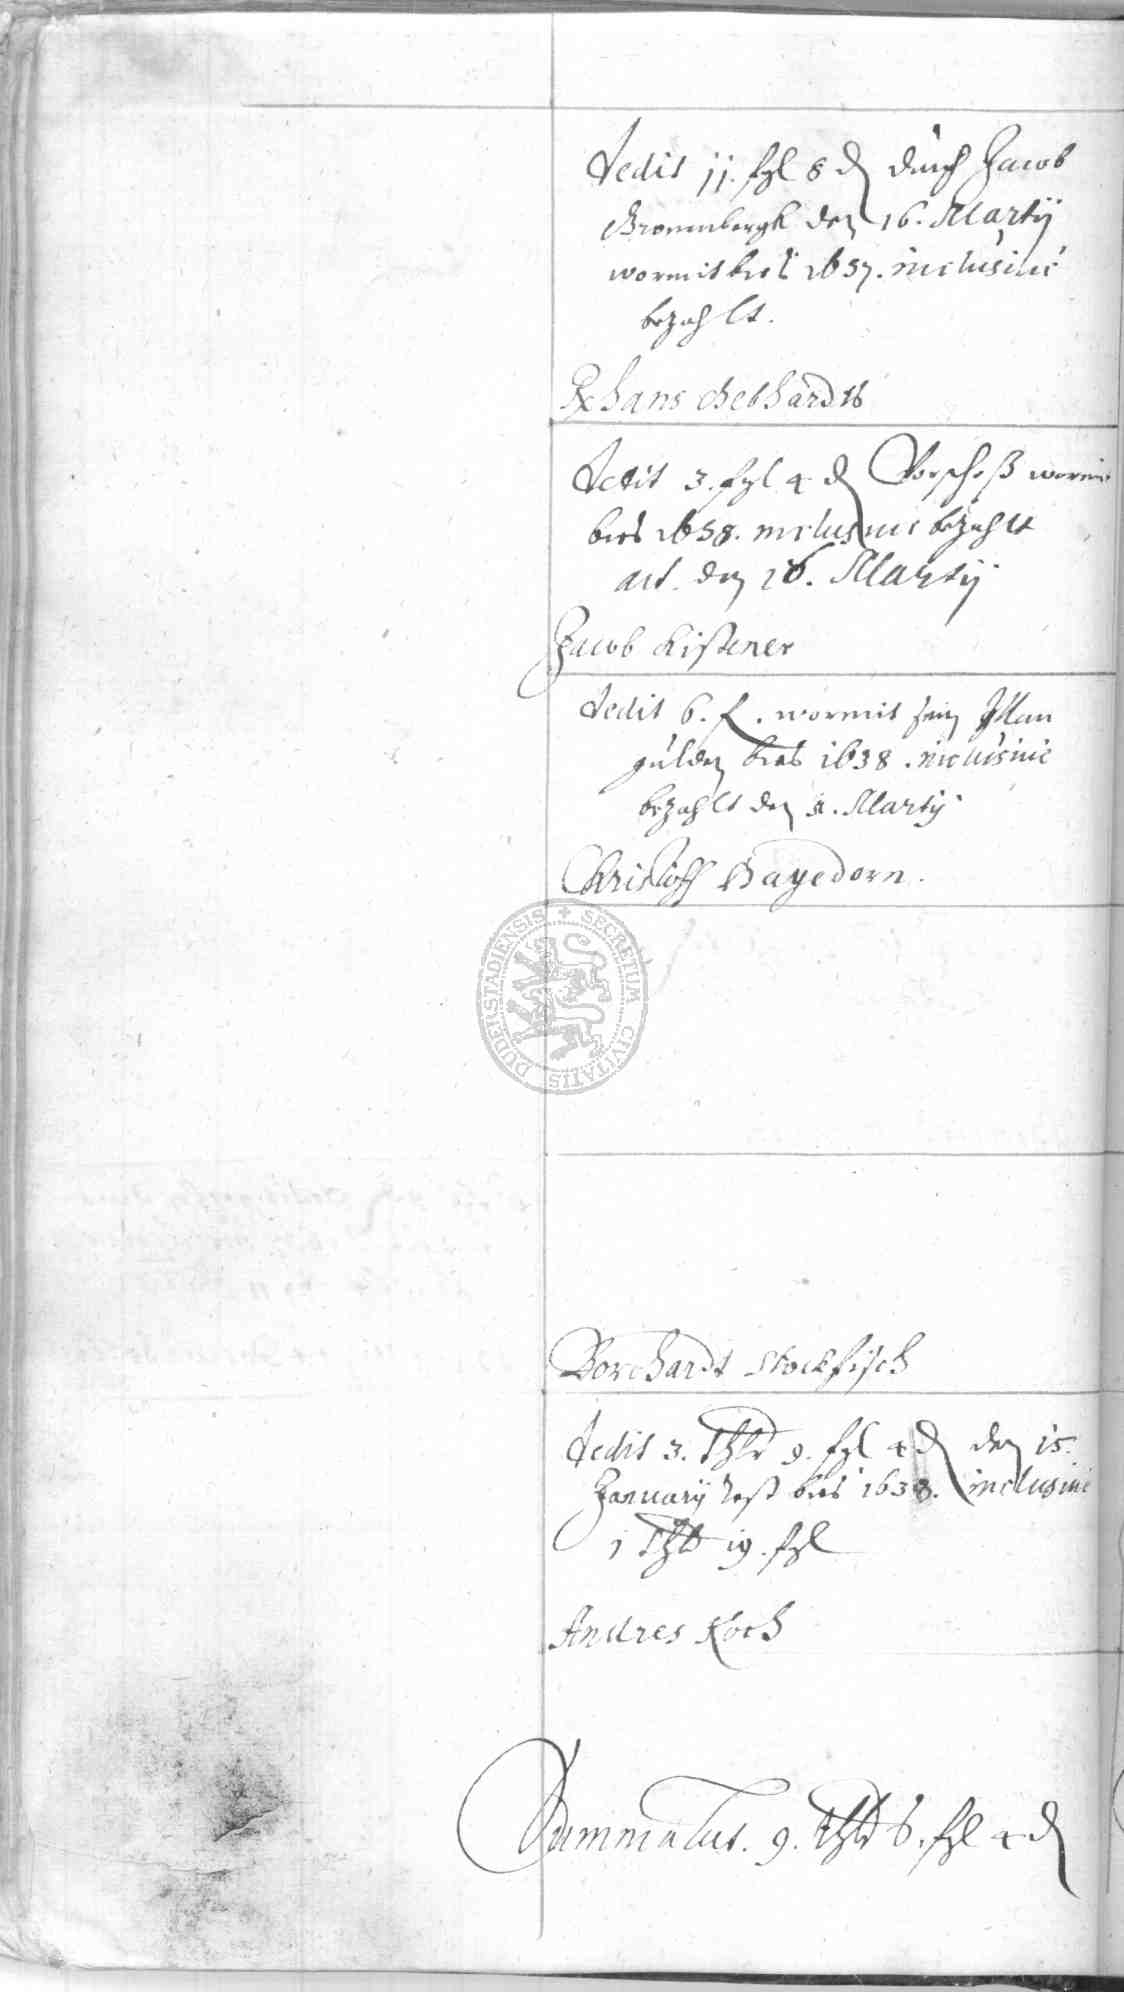 dedit 11. ßgl 8 d durch Jacob
Gronenbergk den 16. Martij
wormit bies 1637. inclusiuè
bezahlt.
Hans Gebhardts
dedit 3. ßgl 4 d Vorschoß wormit
bies 1638. inclusiuè bezahlt
act. den 16. Martij
Jacob Kistener
dedit 6. f. wormit sein Man
gulden bies 1638. inclusiuè
bezahlt den 8. Martij
Christoff Hagedorn.
DUDERSTADIENSIS + SECRETUM CIVITATIS
Borchardt Stockfisch
dedit 3. Thlr 9. ßgl 4 d den 15.
January rest bies 1638. inclusiuè
1 Thlr 19. ßgl
Andres Koch
Summa Lat. 9. Thlr 6. ßgl 4 d